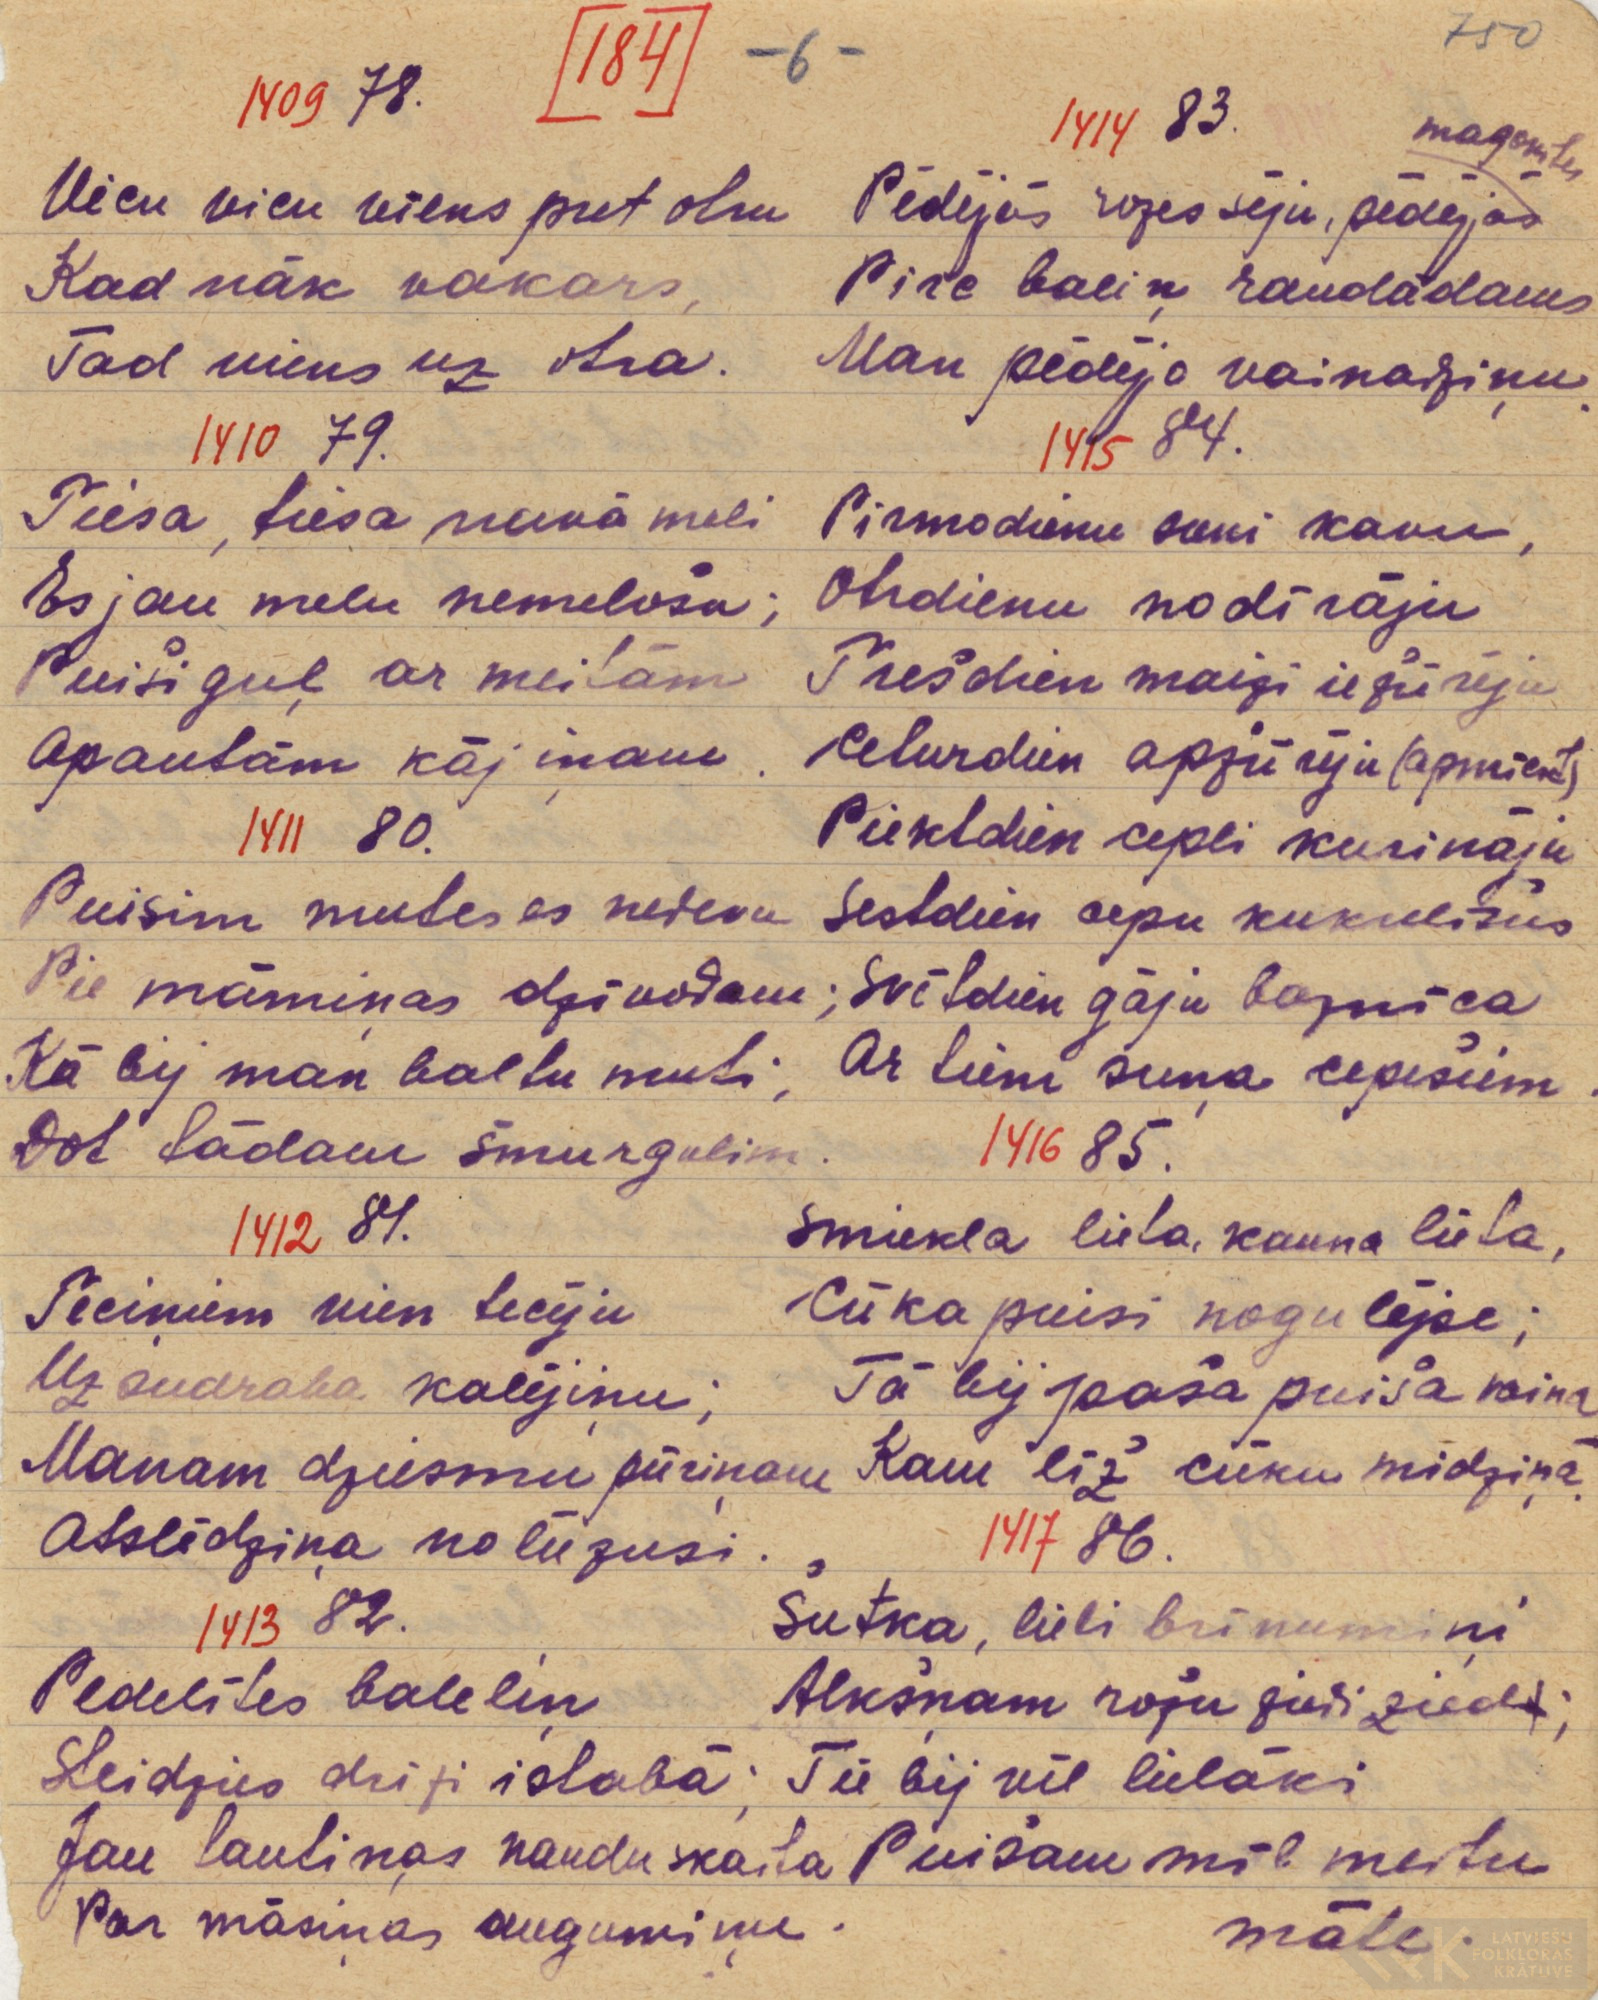 [184] -6- 750
1409 78.
Vicu vicu viens pret otru
Kad nāk vakars,
Tad viens uz otra.
1410 79.
Tiesa, tiesa navā meli
Es jau melu nemelošu;
Puiši guļ ar meitām
Apautām kājiņam.
1411 80.
Puisim mutes es nedevu
Pie māmiņas dzīvodam;
Kā bij man baltu muti,
Dot tādam šmurgulim.
1412 81.
Teciņiem vien tecēju
Uz sudraba kalējiņu;
Manam dziesmu pūriņam
Atslēdziņa nolūzusi.
1413 82.
Pedelītes baleliņ
Steidzies drīzi istabā;
Jau tautiņas naudu skaita
Par māsiņas augumiņu.
1414 83.
magonītes
Pēdējās rozes sēju, pēdējās
Pirc baliņ raudādams
Man pēdējo vainadziņu.
1415 84.
Pirmodienu suni kavu,
Otrdienu nodīrāju
Trešdien maizi iežūrēju
Ceturdien apžūrēju (apmīcīt)
Piektdien cepli kurināju
Sestdien cepu kukulīšus
Svētdien gāju baznīca
Ar tiem suņa cepešiem.
1416 85.
Smiekla lieta, kauna lieta,
Cūka puisi nogulējse;
Tā bij paša puiša vaina
Kam līž cūku midziņā.
1417 86.
Šutka, lieli brīnumiņi
Alkšņam rožu ziedi zied;
Tie bij vēl lielāki
Puišam mīl meitu
māte.
LATVIEŠU
FOLKLORAS
KRĀTUVE